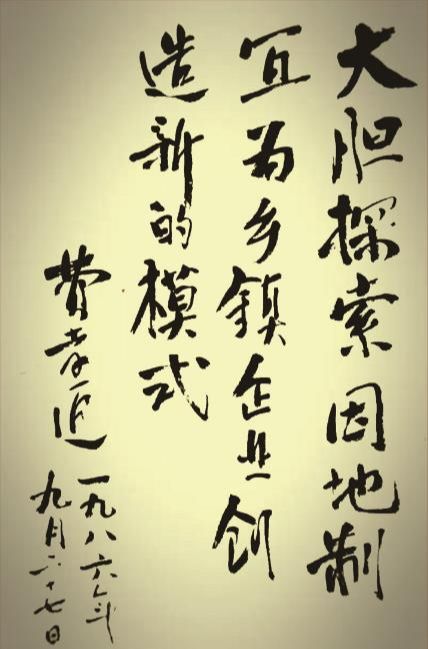 大胆探索因地制
宜为乡镇企业创
造新的模式
费孝通
一九八六年
九月二十七日